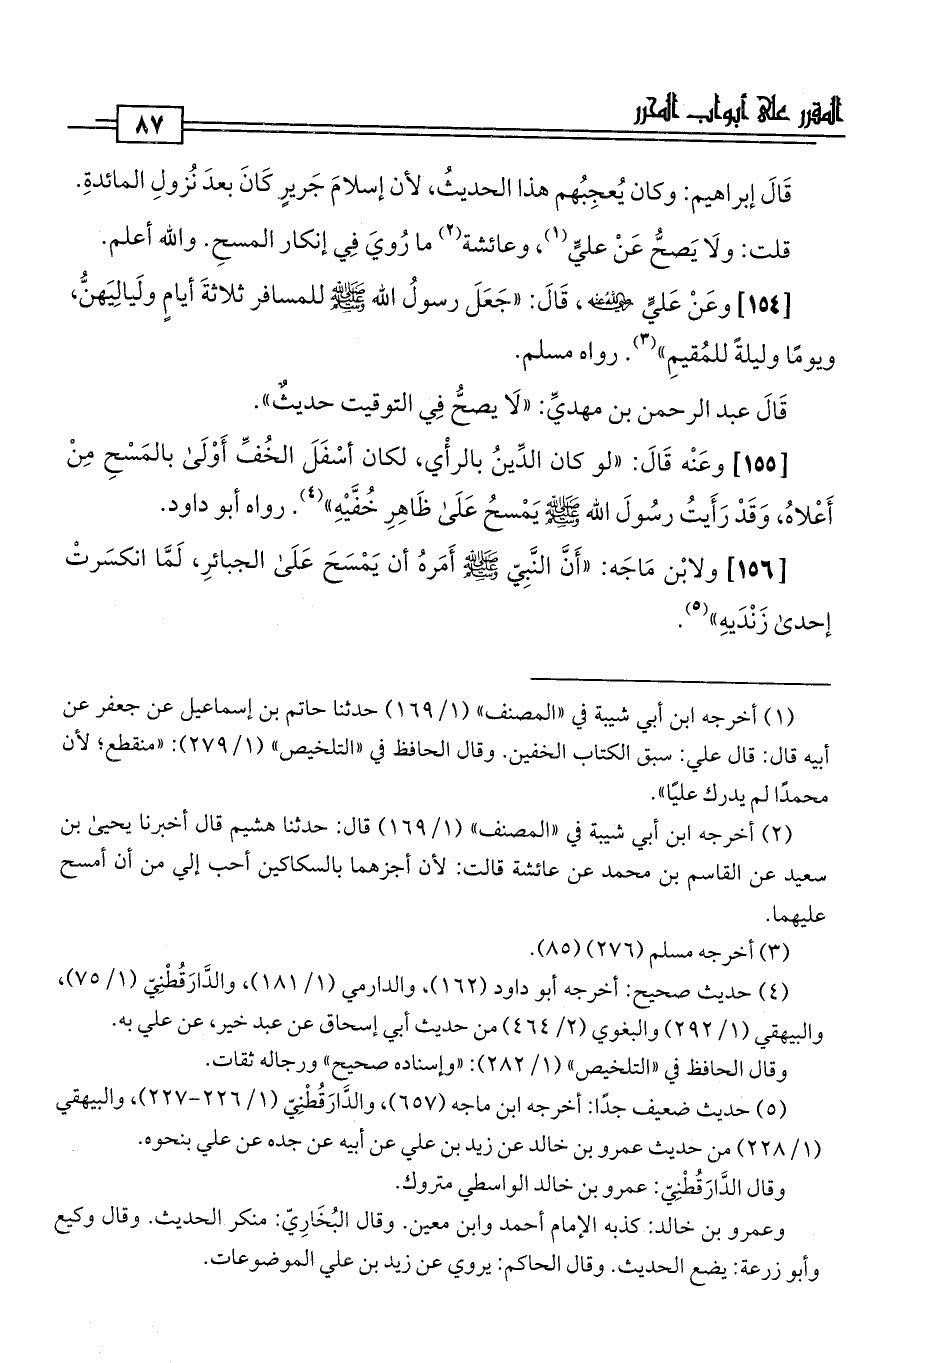 المقرر على أبواب المحرر
٨٧
قَالَ إبراهيم: وكان يُعجِبُهم هذا الحديثُ، لأن إسلامَ جَريرٍ كَانَ بعدَ نُزولِ المائدةِ.
قلت: ولَا يَصحُّ عَنْ عليٍّ(١)، وعائشة(٢) ما رُويَ فِي إنكار المسحِ. والله أعلم.
[١٥٤] وعَنْ عَليٍّ رضي الله عنه، قَالَ: «جَعَلَ رسولُ الله ﷺ للمسافر ثلاثةَ أيامٍ ولَيالِيَهنُّ،
ويومًا وليلةً للمُقيمِ»(٣). رواه مسلم.
قَالَ عبد الرحمن بن مهديٍّ: «لَا يصحُّ فِي التوقيت حديثٌ».
[١٥٥] وعَنْه قَالَ: «لو كان الدِّينُ بالرأْي، لكان أسْفَلَ الخُفِّ أَوْلَىٰ بالمَسْحِ مِنْ
أَعْلاهُ، وَقَدْ رَأَيتُ رسُولَ الله ﷺ يَمْسحُ عَلَىٰ ظَاهِرِ خُفَّيْهِ»(٤). رواه أبو داود.
[١٥٦] ولابْن مَاجَه: «أَنَّ النَّبِيّ ﷺ أَمَرَهُ أن يَمْسَحَ عَلَىٰ الجبائرِ، لَمَّا انكسَرتْ
إحدىٰ زَنْدَيهِ»(٥).
(١) أخرجه ابن أبي شيبة في «المصنف» (١/ ١٦٩) حدثنا حاتم بن إسماعيل عن جعفر عن
أبيه قال: قال علي: سبق الكتاب الخفين. وقال الحافظ في «التلخيص» (١/ ٢٧٩): «منقطع؛ لأن
محمدًا لم يدرك عليًا».
(٢) أخرجه ابن أبي شيبة في «المصنف» (١/ ١٦٩) قال: حدثنا هشيم قال أخبرنا يحيىٰ بن
سعيد عن القاسم بن محمد عن عائشة قالت: لأن أجزهما بالسكاكين أحب إلي من أن أمسح
عليهما.
(٣) أخرجه مسلم (٢٧٦) (٨٥).
(٤) حديث صحيح: أخرجه أبو داود (١٦٢)، والدارمي (١/ ١٨١)، والدَّارَقُطْنِيّ (١/ ٧٥)،
والبيهقي (١/ ٢٩٢) والبغوي (٢/ ٤٦٤) من حديث أبي إسحاق عن عبد خير، عن علي به.
وقال الحافظ في «التلخيص» (١/ ٢٨٢): «وإسناده صحيح» ورجاله ثقات.
(٥) حديث ضعيف جدًا: أخرجه ابن ماجه (٦٥٧)، والدَّارَقُطْنِيّ (١/ ٢٢٦-٢٢٧)، والبيهقي
(١/ ٢٢٨) من حديث عمرو بن خالد عن زيد بن علي عن أبيه عن جده عن علي بنحوه.
وقال الدَّارَقُطْنِيّ: عمرو بن خالد الواسطي متروك.
وعمرو بن خالد: كذبه الإمام أحمد وابن معين. وقال البُخَارِيّ: منكر الحديث. وقال وكيع
وأبو زرعة: يضع الحديث. وقال الحاكم: يروي عن زيد بن علي الموضوعات.